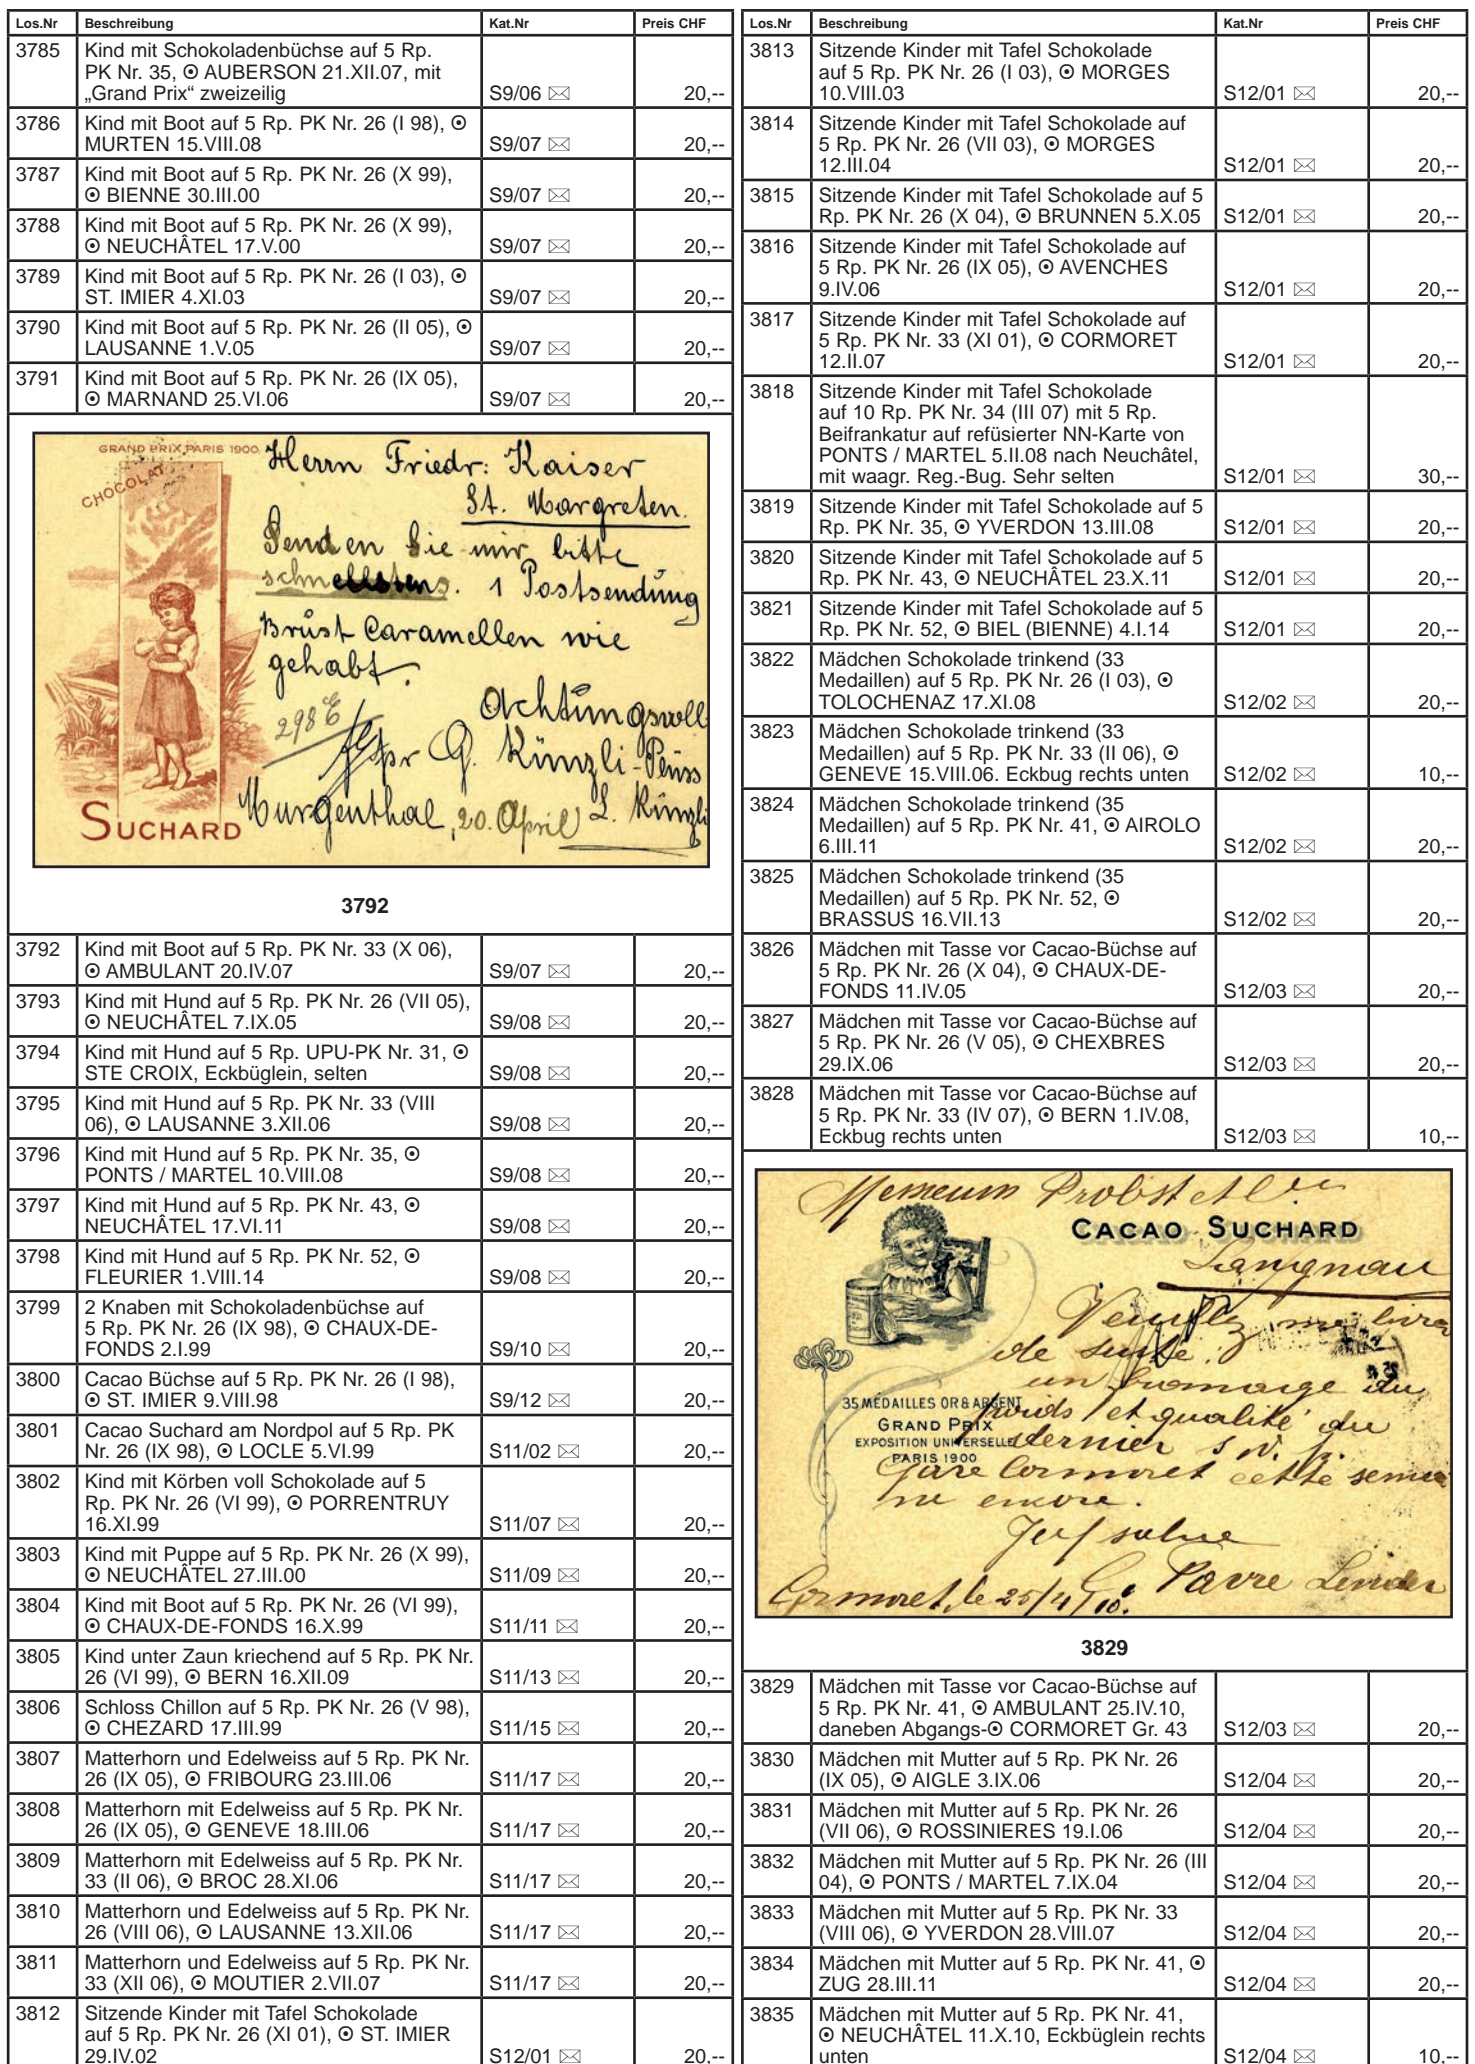 Los.Nr Beschreibung Kat.Nr Preis CHF
3785 Kind mit Schokoladenbüchse auf 5 Rp.
PK Nr. 35, ⊙ AUBERSON 21.XII.07, mit
„Grand Prix“ zweizeilig S9/06 ✉ 20,--
3786 Kind mit Boot auf 5 Rp. PK Nr. 26 (I 98), ⊙
MURTEN 15.VIII.08 S9/07 ✉ 20,--
3787 Kind mit Boot auf 5 Rp. PK Nr. 26 (X 99),
⊙ BIENNE 30.III.00 S9/07 ✉ 20,--
3788 Kind mit Boot auf 5 Rp. PK Nr. 26 (X 99),
⊙ NEUCHÂTEL 17.V.00 S9/07 ✉ 20,--
3789 Kind mit Boot auf 5 Rp. PK Nr. 26 (I 03), ⊙
ST. IMIER 4.XI.03 S9/07 ✉ 20,--
3790 Kind mit Boot auf 5 Rp. PK Nr. 26 (II 05), ⊙
LAUSANNE 1.V.05 S9/07 ✉ 20,--
3791 Kind mit Boot auf 5 Rp. PK Nr. 26 (IX 05),
⊙ MARNAND 25.VI.06 S9/07 ✉ 20,--
GRAND PRIX PARIS 1900
CHOCOLAT
Herrn Friedr: Kaiser
St. Margreten.
Senden Sie mir bitte
schnellstens. 1 Postsendung
Brust Caramellen wie
gehabt.
Achtungsvoll
ppr G. Künzli-
L. Künzli
Murgenthal, 20. April
SUCHARD
3792
3792 Kind mit Boot auf 5 Rp. PK Nr. 33 (X 06),
⊙ AMBULANT 20.IV.07 S9/07 ✉ 20,--
3793 Kind mit Hund auf 5 Rp. PK Nr. 26 (VII 05),
⊙ NEUCHÂTEL 7.IX.05 S9/08 ✉ 20,--
3794 Kind mit Hund auf 5 Rp. UPU-PK Nr. 31, ⊙
STE CROIX, Eckbüglein, selten S9/08 ✉ 20,--
3795 Kind mit Hund auf 5 Rp. PK Nr. 33 (VIII
06), ⊙ LAUSANNE 3.XII.06 S9/08 ✉ 20,--
3796 Kind mit Hund auf 5 Rp. PK Nr. 35, ⊙
PONTS / MARTEL 10.VIII.08 S9/08 ✉ 20,--
3797 Kind mit Hund auf 5 Rp. PK Nr. 43, ⊙
NEUCHÂTEL 17.VI.11 S9/08 ✉ 20,--
3798 Kind mit Hund auf 5 Rp. PK Nr. 52, ⊙
FLEURIER 1.VIII.14 S9/08 ✉ 20,--
3799 2 Knaben mit Schokoladenbüchse auf
5 Rp. PK Nr. 26 (IX 98), ⊙ CHAUX-DE-
FONDS 2.I.99 S9/10 ✉ 20,--
3800 Cacao Büchse auf 5 Rp. PK Nr. 26 (I 98),
⊙ ST. IMIER 9.VIII.98 S9/12 ✉ 20,--
3801 Cacao Suchard am Nordpol auf 5 Rp. PK
Nr. 26 (IX 98), ⊙ LOCLE 5.VI.99 S11/02 ✉ 20,--
3802 Kind mit Körben voll Schokolade auf 5
Rp. PK Nr. 26 (VI 99), ⊙ PORRENTRUY
16.XI.99 S11/07 ✉ 20,--
3803 Kind mit Puppe auf 5 Rp. PK Nr. 26 (X 99),
⊙ NEUCHÂTEL 27.III.00 S11/09 ✉ 20,--
3804 Kind mit Boot auf 5 Rp. PK Nr. 26 (VI 99),
⊙ CHAUX-DE-FONDS 16.X.99 S11/11 ✉ 20,--
3805 Kind unter Zaun kriechend auf 5 Rp. PK Nr.
26 (VI 99), ⊙ BERN 16.XII.09 S11/13 ✉ 20,--
3806 Schloss Chillon auf 5 Rp. PK Nr. 26 (V 98),
⊙ CHEZARD 17.III.99 S11/15 ✉ 20,--
3807 Matterhorn und Edelweiss auf 5 Rp. PK Nr.
26 (IX 05), ⊙ FRIBOURG 23.III.06 S11/17 ✉ 20,--
3808 Matterhorn mit Edelweiss auf 5 Rp. PK Nr.
26 (IX 05), ⊙ GENEVE 18.III.06 S11/17 ✉ 20,--
3809 Matterhorn mit Edelweiss auf 5 Rp. PK Nr.
33 (II 06), ⊙ BROC 28.XI.06 S11/17 ✉ 20,--
3810 Matterhorn und Edelweiss auf 5 Rp. PK Nr.
26 (VIII 06), ⊙ LAUSANNE 13.XII.06 S11/17 ✉ 20,--
3811 Matterhorn und Edelweiss auf 5 Rp. PK Nr.
33 (XII 06), ⊙ MOUTIER 2.VII.07 S11/17 ✉ 20,--
3812 Sitzende Kinder mit Tafel Schokolade
auf 5 Rp. PK Nr. 26 (XI 01), ⊙ ST. IMIER
29.IV.02 S12/01 ✉ 20,--
Los.Nr Beschreibung Kat.Nr Preis CHF
3813 Sitzende Kinder mit Tafel Schokolade
auf 5 Rp. PK Nr. 26 (I 03), ⊙ MORGES
10.VIII.03 S12/01 ✉ 20,--
3814 Sitzende Kinder mit Tafel Schokolade auf
5 Rp. PK Nr. 26 (VII 03), ⊙ MORGES
12.III.04 S12/01 ✉ 20,--
3815 Sitzende Kinder mit Tafel Schokolade auf 5
Rp. PK Nr. 26 (X 04), ⊙ BRUNNEN 5.X.05 S12/01 ✉ 20,--
3816 Sitzende Kinder mit Tafel Schokolade auf
5 Rp. PK Nr. 26 (IX 05), ⊙ AVENCHES
9.IV.06 S12/01 ✉ 20,--
3817 Sitzende Kinder mit Tafel Schokolade auf
5 Rp. PK Nr. 33 (XI 01), ⊙ CORMORET
12.II.07 S12/01 ✉ 20,--
3818 Sitzende Kinder mit Tafel Schokolade
auf 10 Rp. PK Nr. 34 (III 07) mit 5 Rp.
Beifrankatur auf refüsierter NN-Karte von
PONTS / MARTEL 5.II.08 nach Neuchâtel,
mit waagr. Reg.-Bug. Sehr selten S12/01 ✉ 30,--
3819 Sitzende Kinder mit Tafel Schokolade auf 5
Rp. PK Nr. 35, ⊙ YVERDON 13.III.08 S12/01 ✉ 20,--
3820 Sitzende Kinder mit Tafel Schokolade auf 5
Rp. PK Nr. 43, ⊙ NEUCHÂTEL 23.X.11 S12/01 ✉ 20,--
3821 Sitzende Kinder mit Tafel Schokolade auf 5
Rp. PK Nr. 52, ⊙ BIEL (BIENNE) 4.I.14 S12/01 ✉ 20,--
3822 Mädchen Schokolade trinkend (33
Medaillen) auf 5 Rp. PK Nr. 26 (I 03), ⊙
TOLOCHENAZ 17.XI.08 S12/02 ✉ 20,--
3823 Mädchen Schokolade trinkend (33
Medaillen) auf 5 Rp. PK Nr. 33 (II 06), ⊙
GENEVE 15.VIII.06. Eckbug rechts unten S12/02 ✉ 10,--
3824 Mädchen Schokolade trinkend (35
Medaillen) auf 5 Rp. PK Nr. 41, ⊙ AIROLO
6.III.11 S12/02 ✉ 20,--
3825 Mädchen Schokolade trinkend (35
Medaillen) auf 5 Rp. PK Nr. 52, ⊙
BRASSUS 16.VII.13 S12/02 ✉ 20,--
3826 Mädchen mit Tasse vor Cacao-Büchse auf
5 Rp. PK Nr. 26 (X 04), ⊙ CHAUX-DE-
FONDS 11.IV.05 S12/03 ✉ 20,--
3827 Mädchen mit Tasse vor Cacao-Büchse auf
5 Rp. PK Nr. 26 (V 05), ⊙ CHEXBRES
29.IX.06 S12/03 ✉ 20,--
3828 Mädchen mit Tasse vor Cacao-Büchse auf
5 Rp. PK Nr. 33 (IV 07), ⊙ BERN 1.IV.08,
Eckbug rechts unten S12/03 ✉ 10,--
Messieurs Probst et Cie
CACAO SUCHARD
Langnau
Veuillez me livrer
de suite
un fromage du
35 MÉDAILLES OR & ARGENT
poids et qualité du
GRAND PRIX
dernier s. v. p.
EXPOSITION UNIVERSELLE
PARIS 1900
Gare Cormoret cette semai
ne encore.
Cormoret, le 25/4/10.
3829
3829 Mädchen mit Tasse vor Cacao-Büchse auf
5 Rp. PK Nr. 41, ⊙ AMBULANT 25.IV.10,
daneben Abgangs-⊙ CORMORET Gr. 43 S12/03 ✉ 20,--
3830 Mädchen mit Mutter auf 5 Rp. PK Nr. 26
(IX 05), ⊙ AIGLE 3.IX.06 S12/04 ✉ 20,--
3831 Mädchen mit Mutter auf 5 Rp. PK Nr. 26
(VII 06), ⊙ ROSSINIERES 19.I.06 S12/04 ✉ 20,--
3832 Mädchen mit Mutter auf 5 Rp. PK Nr. 26 (III
04), ⊙ PONTS / MARTEL 7.IX.04 S12/04 ✉ 20,--
3833 Mädchen mit Mutter auf 5 Rp. PK Nr. 33
(VIII 06), ⊙ YVERDON 28.VIII.07 S12/04 ✉ 20,--
3834 Mädchen mit Mutter auf 5 Rp. PK Nr. 41, ⊙
ZUG 28.III.11 S12/04 ✉ 20,--
3835 Mädchen mit Mutter auf 5 Rp. PK Nr. 41,
⊙ NEUCHÂTEL 11.X.10, Eckbüglein rechts
unten S12/04 ✉ 10,--